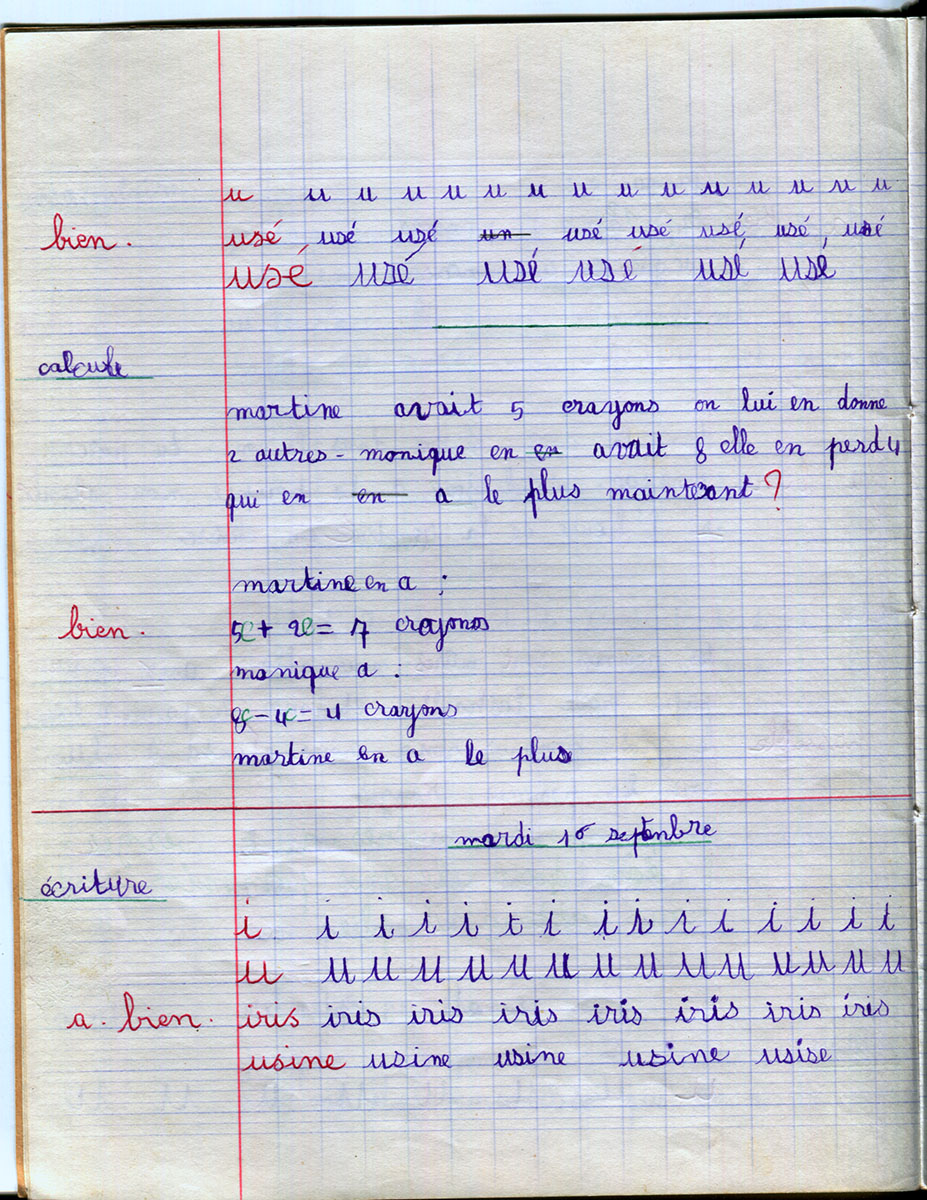 u u u u u u u u u u u u u u u
bien. usé usé usé un usé usé usé usé usé
usé usé usé usé usé use
calcule
martine avait 5 crayons on lui en donne
2 autres - monique en en avait 8 elle en perd 4
qui en en a le plus maintenant ?
martine en a :
bien. 5c + 2c = 7 crayons
monique a :
8c - 4c = 4 crayons
martine en a le plus
mardi 16 septenbre
écriture
i i i i i t i i i i i i i i i
u u u u u u u u u u u u u u u
a. bien. iris iris iris iris iris iris iris iris
usine usine usine usine usise